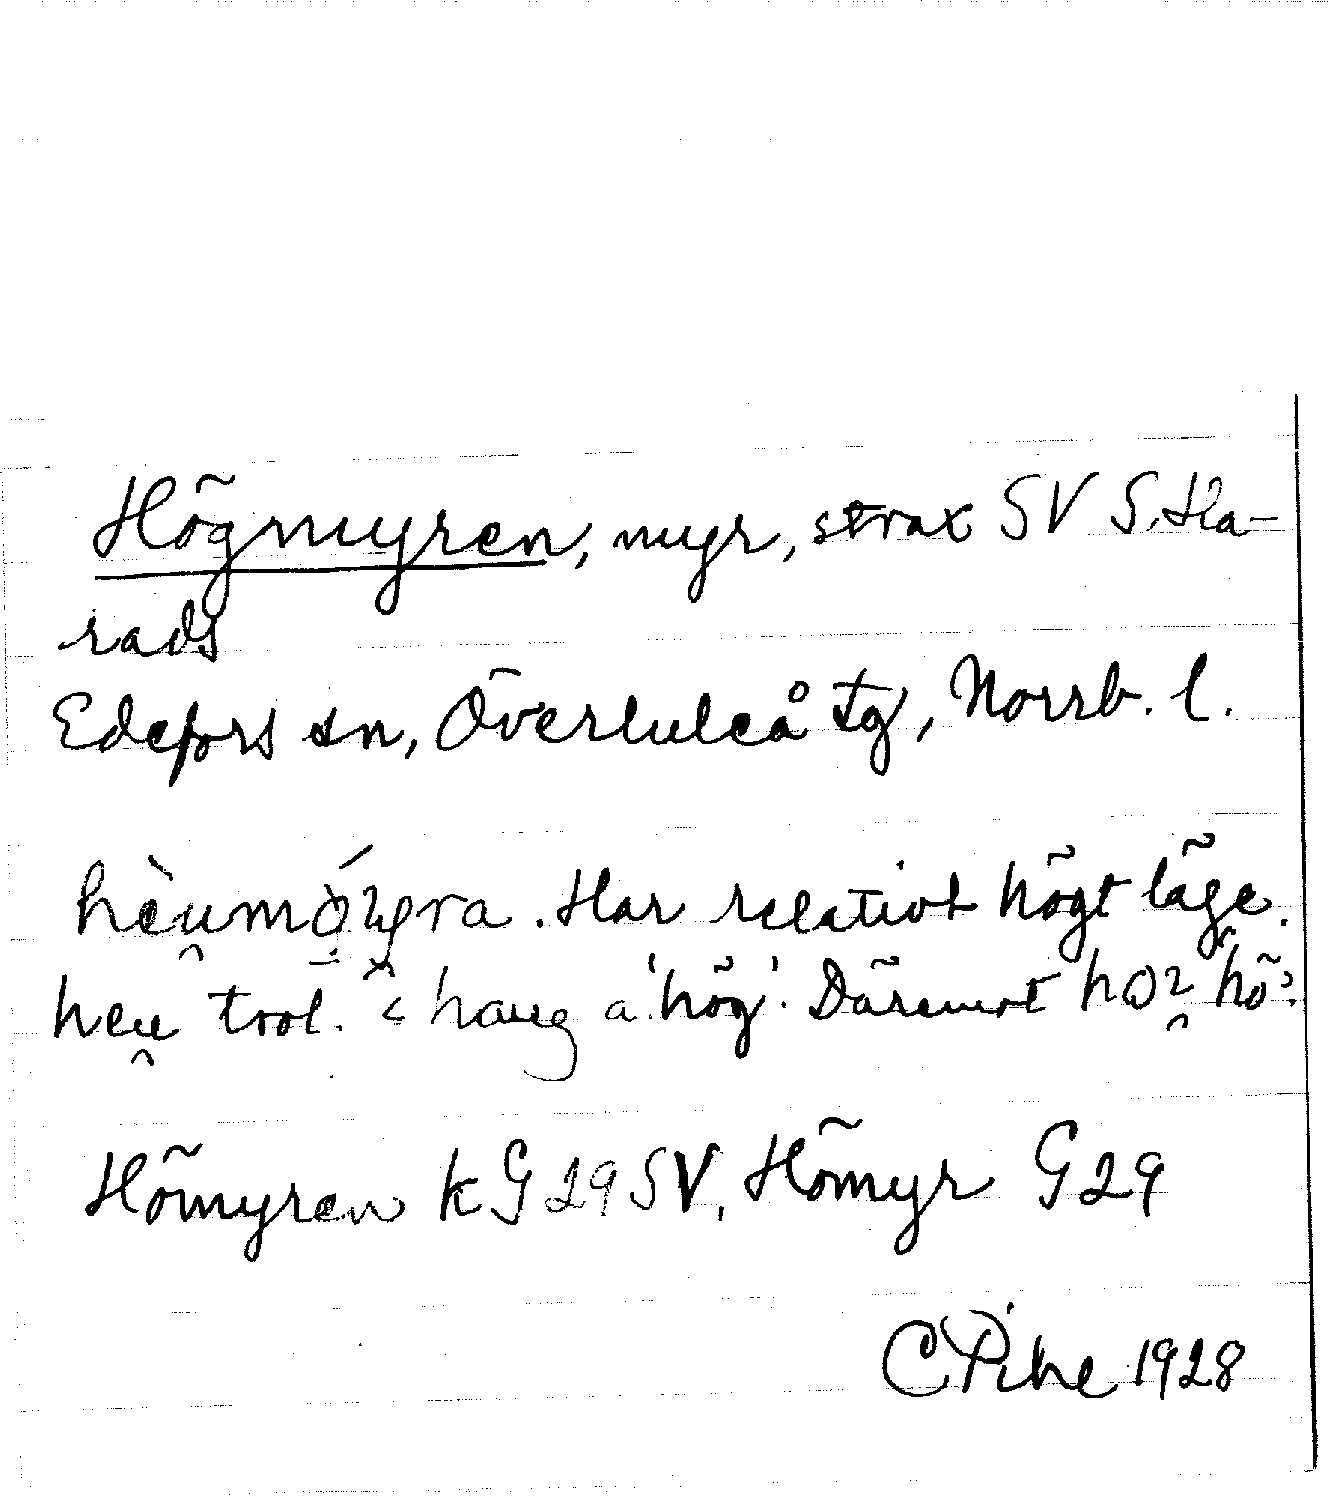 Högmyren, myr, strax SV S. Ha-
rads
Edefors sn, Överluleå tg, Norrb. l.
Har relativt högt läge.
heu̯ trol. < haug a 'hög'. Däremot hö.
Hömyren k G 29 SV, Hömyr G 29
C Pihl 1928